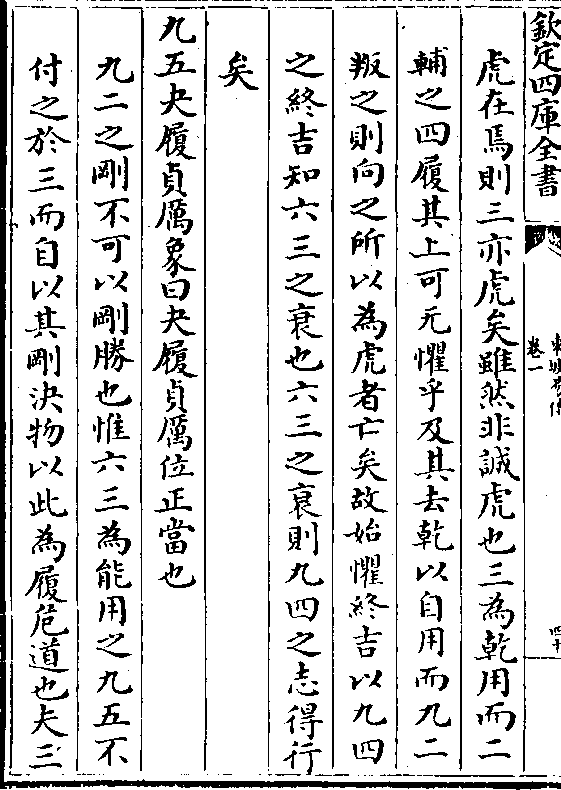 欽定四庫全書
卷一
四十
虎在焉則三亦虎矣雖然非誠虎也三為乾用而二
輔之四履其上可无懼乎及其去乾以自用而九二
叛之則向之所以為虎者亡矣故始懼終吉以九四
之終吉知六三之衰也六三之衰則九四之志得行
矣
九五夬履貞厲象曰夬履貞厲位正當也
九二之剛不可以剛勝也惟六三為能用之九五不
付之於三而自以其剛決物以此為履危道也夫三